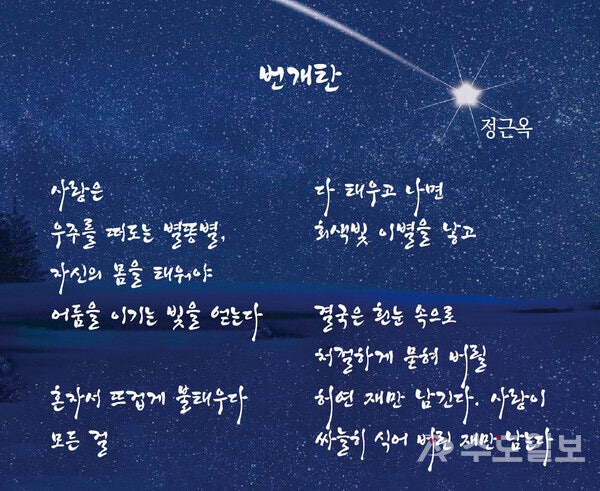 번개탄
정근옥
사랑은
우주를 떠도는 별똥별,
자신의 몸을 태워야
어둠을 이기는 빛을 얻는다
혼자서 뜨겁게 불태우다
모든 걸
다 태우고 나면
회색빛 이별을 낳고
결국은 흰눈 속으로
처절하게 묻혀 버릴
허연 재만 남긴다. 사랑이
싸늘히 식어 버린 재만 남는다
수도일보